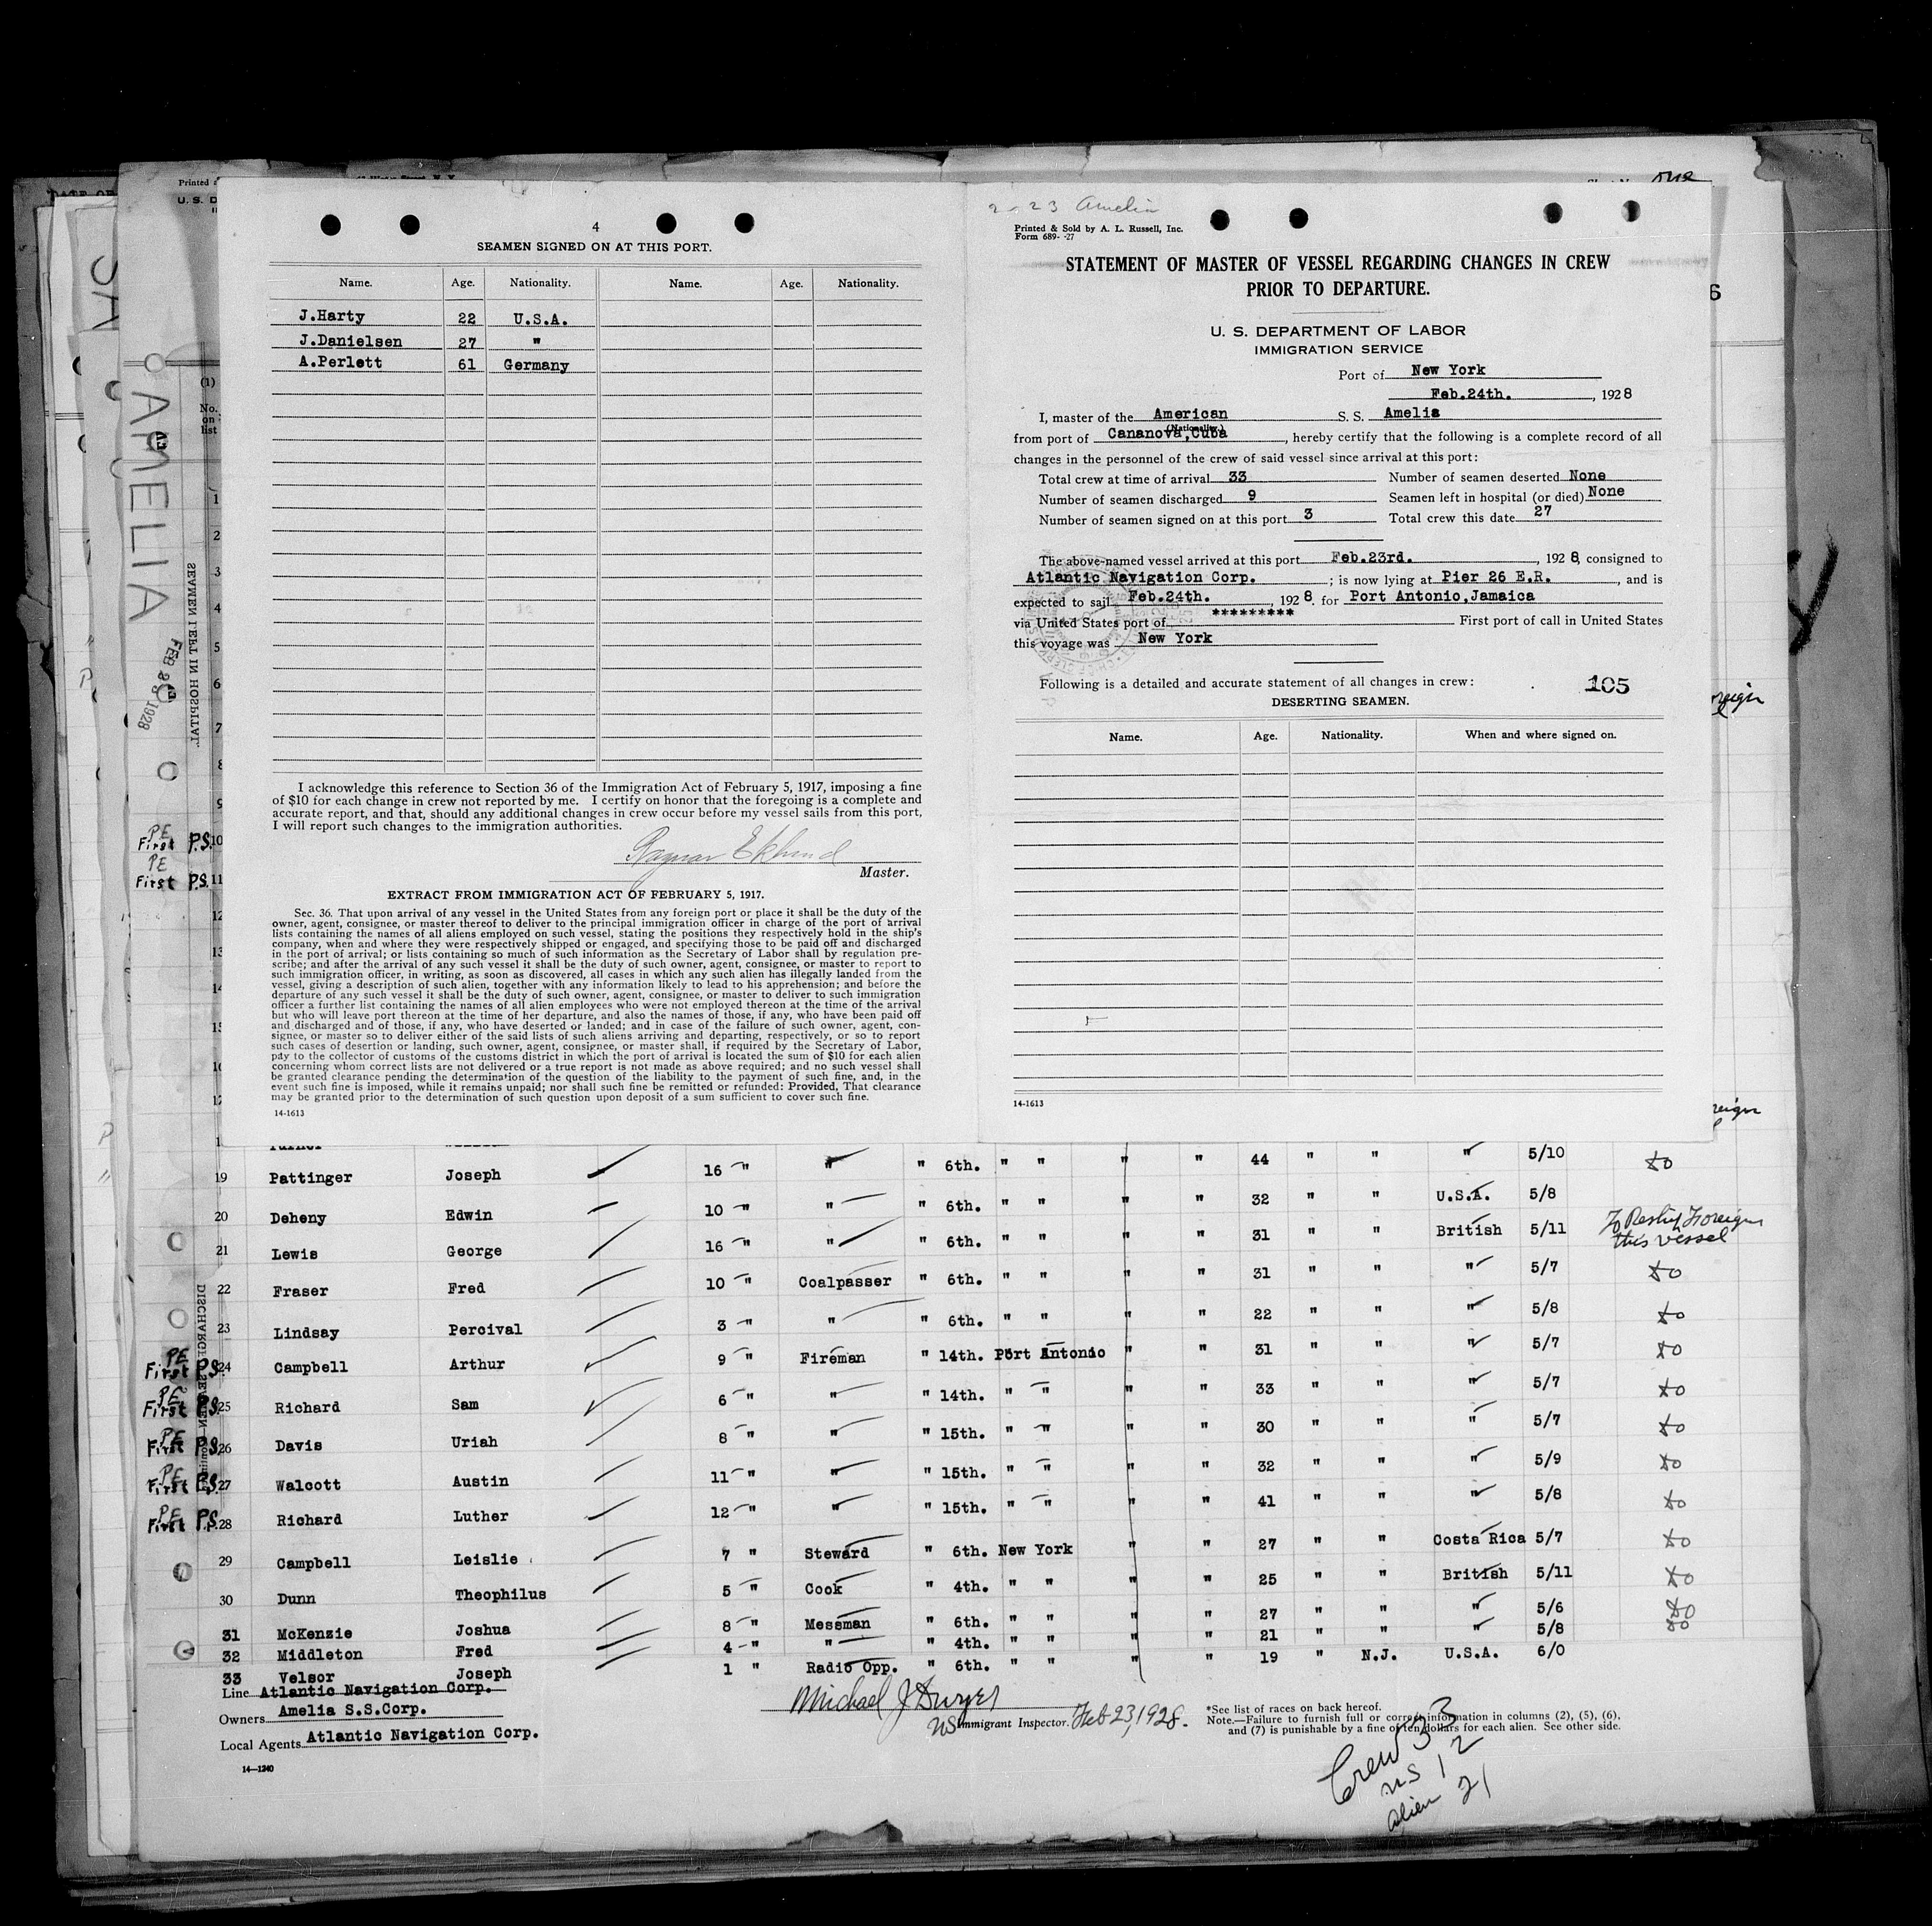 4
SEAMEN SIGNED ON AT THIS PORT.
Name. Age. Nationality. Name. Age. Nationality.
J.Harty 22 U.S.A.
J.Danielsen 27 "
A.Perlett 61 Germany
I acknowledge this reference to Section 36 of the Immigration Act of February 5, 1917, imposing a fine
of $10 for each change in crew not reported by me. I certify on honor that the foregoing is a complete and
accurate report, and that, should any additional changes in crew occur before my vessel sails from this port,
I will report such changes to the immigration authorities.
Ragnar Eklund
Master.
EXTRACT FROM IMMIGRATION ACT OF FEBRUARY 5, 1917.
Sec. 36. That upon arrival of any vessel in the United States from any foreign port or place it shall be the duty of the
owner, agent, consignee, or master thereof to deliver to the principal immigration officer in charge of the port of arrival
lists containing the names of all aliens employed on such vessel, stating the positions they respectively hold in the ship's
company, when and where they were respectively shipped or engaged, and specifying those to be paid off and discharged
in the port of arrival; or lists containing so much of such information as the Secretary of Labor shall by regulation pre-
scribe; and after the arrival of any such vessel it shall be the duty of such owner, agent, consignee, or master to report to
such immigration officer, in writing, as soon as discovered, all cases in which any such alien has illegally landed from the
vessel, giving a description of such alien, together with any information likely to lead to his apprehension; and before the
departure of any such vessel it shall be the duty of such owner, agent, consignee, or master to deliver to such immigration
officer a further list containing the names of all alien employees who were not employed thereon at the time of the arrival
but who will leave port thereon at the time of her departure, and also the names of those, if any, who have been paid off
and discharged and of those, if any, who have deserted or landed; and in case of the failure of such owner, agent, con-
signee, or master so to deliver either of the said lists of such aliens arriving and departing, respectively, or so to report
such cases of desertion or landing, such owner, agent, consignee, or master shall, if required by the Secretary of Labor,
pay to the collector of customs of the customs district in which the port of arrival is located the sum of $10 for each alien
concerning whom correct lists are not delivered or a true report is not made as above required; and no such vessel shall
be granted clearance pending the determination of the question of the liability to the payment of such fine, and, in the
event such fine is imposed, while it remains unpaid; nor shall such fine be remitted or refunded: Provided, That clearance
may be granted prior to the determination of such question upon deposit of a sum sufficient to cover such fine.
14-1613
2-23 Amelia
Printed & Sold by A. L. Russell, Inc.
Form 689- -27
STATEMENT OF MASTER OF VESSEL REGARDING CHANGES IN CREW
PRIOR TO DEPARTURE.
U. S. DEPARTMENT OF LABOR
IMMIGRATION SERVICE
Port of New York
Feb.24th. , 1928
I, master of the American S. S. Amelia
(Nationality)
from port of Cananova,Cuba , hereby certify that the following is a complete record of all
changes in the personnel of the crew of said vessel since arrival at this port:
Total crew at time of arrival 33 Number of seamen deserted None
Number of seamen discharged 9 Seamen left in hospital (or died) None
Number of seamen signed on at this port 3 Total crew this date 27
The above-named vessel arrived at this port Feb.23rd. , 1928, consigned to
Atlantic Navigation Corp. ; is now lying at Pier 26 E.R. , and is
expected to sail Feb.24th. , 1928. for Port Antonio,Jamaica
via United States port of ********* First port of call in United States
this voyage was New York
Following is a detailed and accurate statement of all changes in crew: 105
DESERTING SEAMEN.
Name. Age. Nationality. When and where signed on.
14-1613
AMELIA
FEB 1928
SEAMEN LEFT IN HOSPITAL
(1)
No.
on
list
1
2
3
4
5
6
7
8
9
PE First P.S. 10
PE First P.S. 11
12
13
14
15
16
17
19 Pattinger Joseph 16 " " " 6th. " " " " 44 " " " 5/10 do
20 Deheny Edwin 10 " " " 6th. " " " " 32 " " U.S.A. 5/8
21 Lewis George 16 " " " 6th. " " " " 31 " " British 5/11 To Reship Foreign this vessel
22 Fraser Fred 10 " Coalpasser " 6th. " " " " 31 " " " 5/7 do
23 Lindsay Percival 3 " " " 6th. " " " " 22 " " " 5/8 do
PE First P.S. 24 Campbell Arthur 9 " Fireman " 14th. Port Antonio " " 31 " " " 5/7 do
PE First P.S. 25 Richard Sam 6 " " " 14th. " " " " 33 " " " 5/7 do
PE First P.S. 26 Davis Uriah 8 " " " 15th. " " " " 30 " " " 5/7 do
PE First P.S. 27 Walcott Austin 11 " " " 15th. " " " " 32 " " " 5/9 do
PE First P.S. 28 Richard Luther 12 " " " 15th. " " " " 41 " " " 5/8 do
29 Campbell Leislie 7 " Steward " 6th. New York " " 27 " " Costa Rica 5/7 do
30 Dunn Theophilus 5 " Cook " 4th. " " " " 25 " " British 5/11 do
31 McKenzie Joshua 8 " Messman " 6th. " " " " 27 " " " 5/6 do
32 Middleton Fred 4 " " " 4th. " " " " 21 " " " 5/8 do
33 Velsor Joseph 1 " Radio Opp. " 6th. " " " " 19 " N.J. U.S.A. 6/0
Line Atlantic Navigation Corp.
Owners Amelia S.S.Corp.
Local Agents Atlantic Navigation Corp.
14—1240
Michael J Dwyer
US Immigrant Inspector. Feb 23, 1928.
*See list of races on back hereof.
Note.—Failure to furnish full or correct information in columns (2), (5), (6),
and (7) is punishable by a fine of ten dollars for each alien. See other side.
Crew 33
US 12
Alien 21